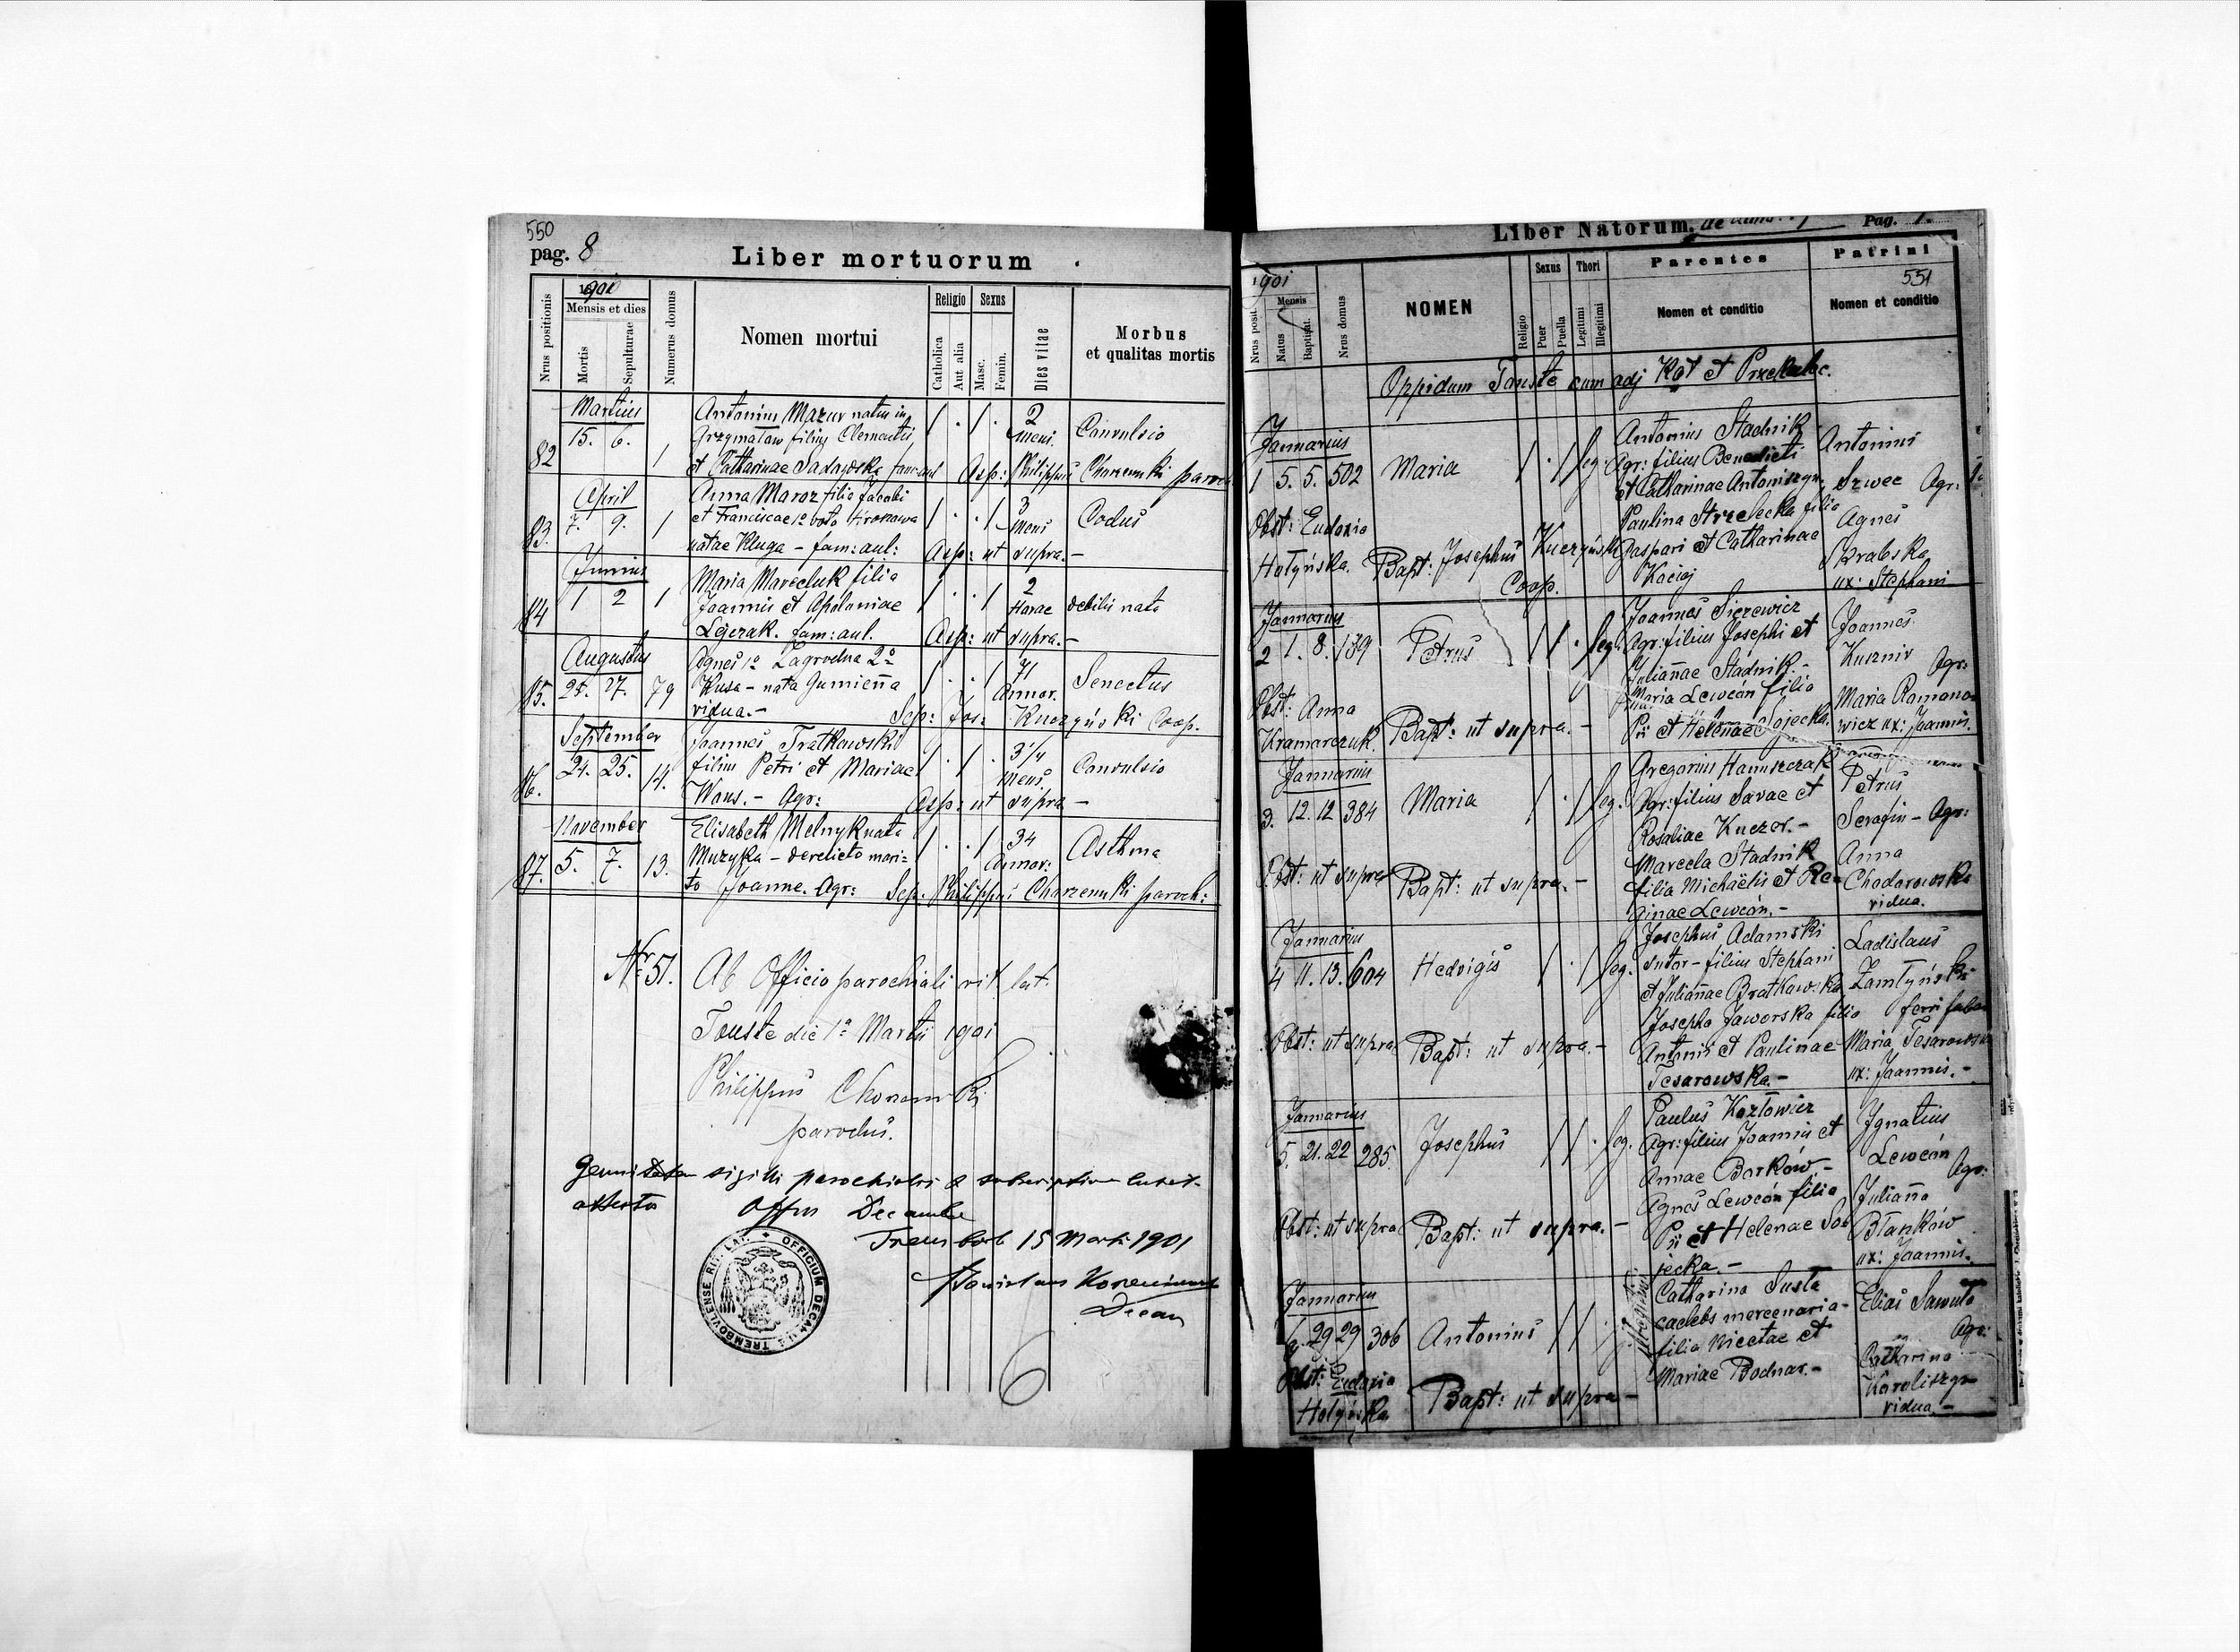 550
pag. 8
Liber mortuorum
Nrus positionis
1901
Mensis et dies
Mortis
Sepulturae
Numerus domus
Nomen mortui
Religio
Catholica
Aut alia
Sexus
Masc.
Femin.
Dies vitae
Morbus
et qualitas mortis
Martius
82 15. 6. 1
Antonius Mazur natus in
Grzymałow filius Clementis
et Catharinae Sadowska fam: aul
2
Mens.
Convulsio
Asp: Philippus Charzewski paroch
April
83. 7. 9. 1
Anna Maroz filia Jacobi
et Franciscae 1º voto
natae Kluga – fam: aul:
3
Mens
Asp: ut supra. –
Junius
84 1 2 1
Maria Mareeluk filia
Joannis et Apoloniae
Lejczak. fam: aul.
2
Horae
debilis nata
Asp: ut supra. –
Augustus
85. 25. 27. 79
Agnes 1º Zagrodna 2º
Kusa – nata Gumienna
vidua. –
71
Annor.
Senectus
Sep: Jos: Kuczyński Coop.
September
86. 24. 25. 14.
Joannes Tratkowski
filius Petri et Mariae
Wans. – Agr:
3 1/4
Mens.
Convulsio
Asp: ut supra –
November
87. 5. 7. 13.
Elisabeth Melnyk nata
Muzyka – derelicto mari=
to Joanne. Agr:
34
Annor:
Asthma
Sep: Philippus Charzewski paroch:
Nr 51. Ab Officio parochiali rit. lat.
Touste die 1ª Martii 1901
Philippus
parochus.
sigilli parochialis & subscriptionis
Decanale
15 Marti 1901
Decan
OFFICIUM DECAN. TREMBOVLIENSE RIT. LAT.
Liber Natorum. Pag. 1.
551
1901
Nrus posit.
Mensis
Natus
Baptisat.
Nrus domus
NOMEN
Religio
Sexus
Puer
Puella
Thori
Legitimi
Illegitimi
Parentes
Nomen et conditio
Patrini
Nomen et conditio
Oppidum Touste cum adj Kąt et Przekalec.
Januarius
1 5. 5. 502 Maria leg.
Antonius Stadnik
Agr: filius Benedicti
et Catharinae Antoniszyn
Paulina Strzelecka filia
Gaspari et Catharinae
Kaciaj
Antonius
Szwec Agr:
Agnes
Skrabska
ux: Stephani
Obst: Eudoxia
Hołyńska.
Bapt: Josephus Kuczyński
Coop.
Januarius
2 1. 8. 139 Petrus leg.
Joannes Sięzewicz
Agr: filius Josephi et
Juliannae Stadnik –
Maria Lewcón filia
Pii et Helenae Sojecka.
Joannes
Kusznir Agr:
Maria Romano=
wicz ux: Joannis.
Obst: Anna
Kramarczuk.
Bapt: ut supra. –
Januarius
3. 12. 12 384 Maria leg.
Gregorius Hanuszczak
Agr: filius Savae et
Rosaliae Kuczer. –
Marcela Stadnik
filia Michaëlis et Re=
ginae Lewcón. –
Petrus
Serafin – Agr:
Anna
Chodorowska
vidua.
Obst: ut supra
Bapt: ut supra. –
Januarius
4 11. 13. 604 Hedvigis leg.
Josephus Adamski
sutor – filius Stephani
et Juliannae Bratkowska
Josepha Jaworska filia
Antonii et Paulinae
Tesarowska. –
Ladislaus
Zamłyński
ferri faber
Maria Tesarowska
ux: Joannis. –
Obst: ut supra
Bapt: ut supra. –
Januarius
5. 21. 22 285. Josephus leg.
Paulus Kozłowicz
Agr: filius Joannis et
Annae Barków. –
Agnes Lewcón filia
Pii et Helenae So=
jecka. –
Ignatius
Lewcón Agr:
Julianna
Błanków
ux: Joannis.
Obst: ut supra
Bapt: ut supra. –
Januarius
6. 29 29 306 Antonius
illegitimi
Catharina Susta
caelebs mercenaria –
filia Nicetae et
Mariae Bodnar. –
Elias Sawuła
Agr:
Catharina
Karoliszyn
vidua. –
Obst: Eudoxia
Hołyńska
Bapt: ut supra –